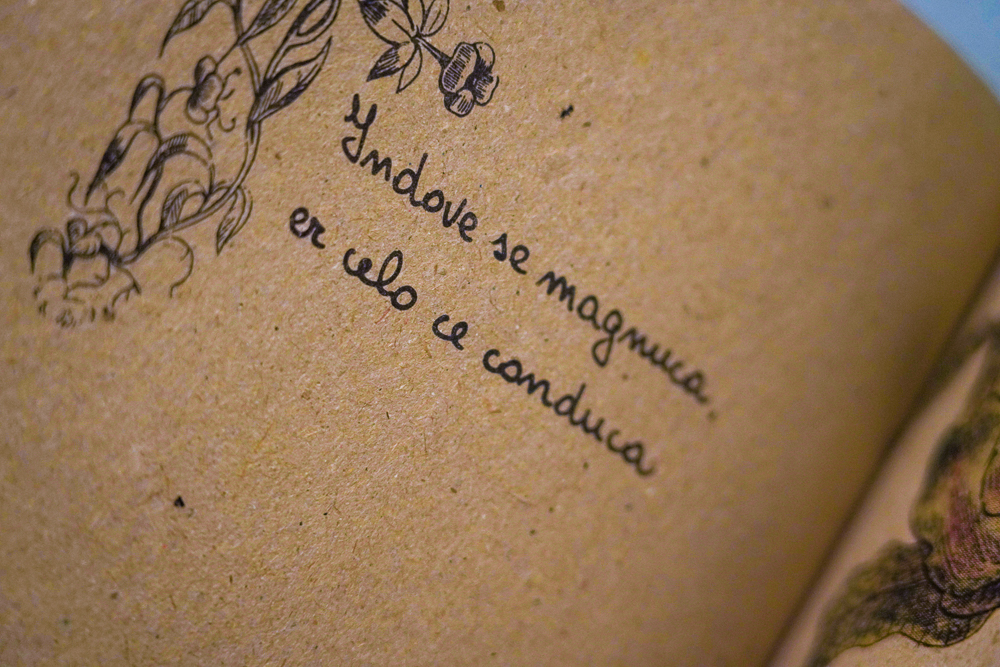 Yndove se magnuca.
er celo ce conduca